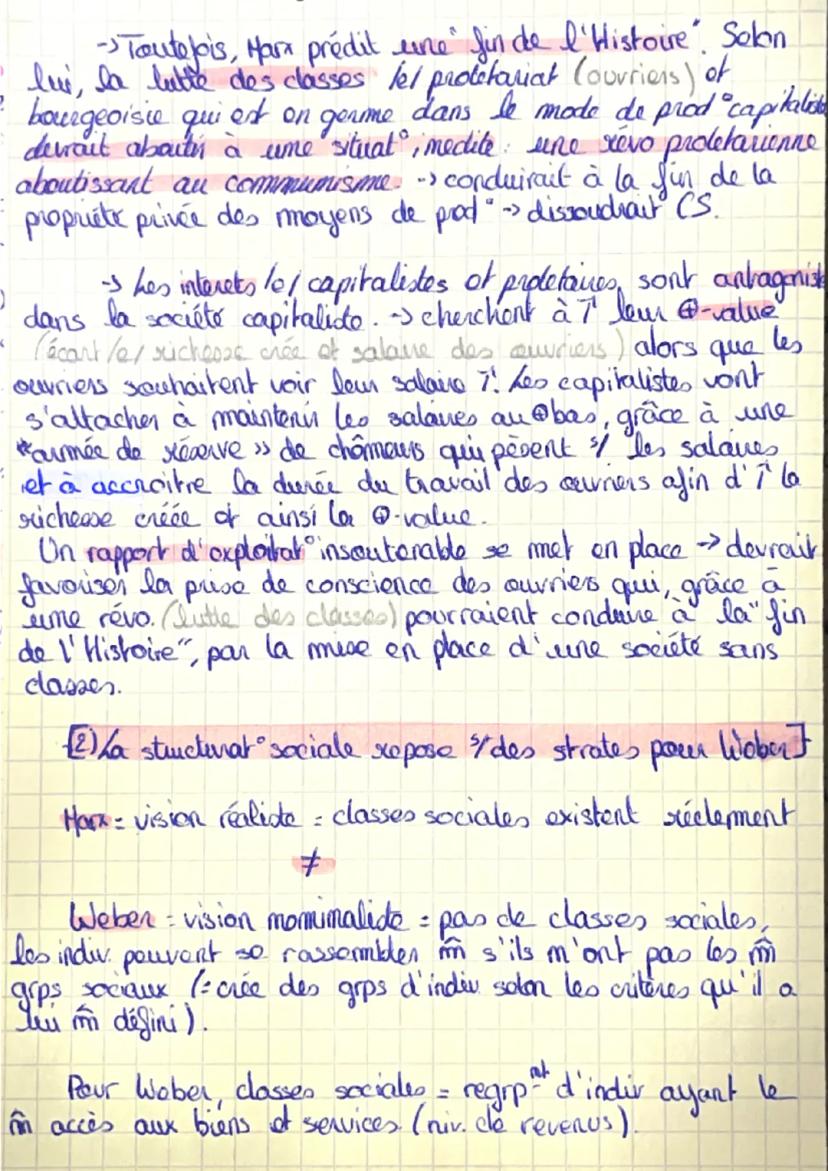 -> Toutefois, Marx prédit une "fin de l'Histoire". Selon
lui, la lutte des classes /e/ prolétariat (ouvriers) et
bourgeoisie qui est en germe dans le mode de prod° capitaliste
devrait aboutir à une situat°, inédite : une révo prolétarienne
aboutissant au communisme. -> conduirait à la fin de la
propriété privée des moyens de prod° -> dissoudrait CS.
-> Les intérêts /e/ capitalistes et prolétaires, sont antagonist
dans la société capitaliste. -> cherchent à ↑ leur ⊕-value
(écart /e/ richesse crée et salaire des ouvriers) alors que les
ouvriers souhaitent voir leur salaire ↑. Les capitalistes vont
s'attacher à maintenir les salaires au ⊕ bas, grâce à une
"armée de réserve" de chômeurs qui pèsent s/ les salaires
et à accroitre la durée du travail des ouvriers afin d'↑ la
richesse créée et ainsi la ⊕-value.
Un rapport d'exploitat° insoutenable se met en place -> devrait
favoriser la prise de conscience des ouvriers qui, grâce à
une révo. (lutte des classes) pourraient conduire à la "fin
de l'Histoire", par la mise en place d'une société sans
classes.
[2) La structurat° sociale repose s/ des strates pour Weber]
Marx = vision réaliste = classes sociales existent réellement
≠
Weber = vision nominaliste = pas de classes sociales,
les indiv. peuvent se rassembler m̂ s'ils n'ont pas les m̂
grps sociaux (= crée des grps d'indiv. selon les critères qu'il a
lui m̂ défini).
Pour Weber, classes sociales = regrp^mt d'indiv ayant le
m̂ accès aux biens et services (niv. de revenus).